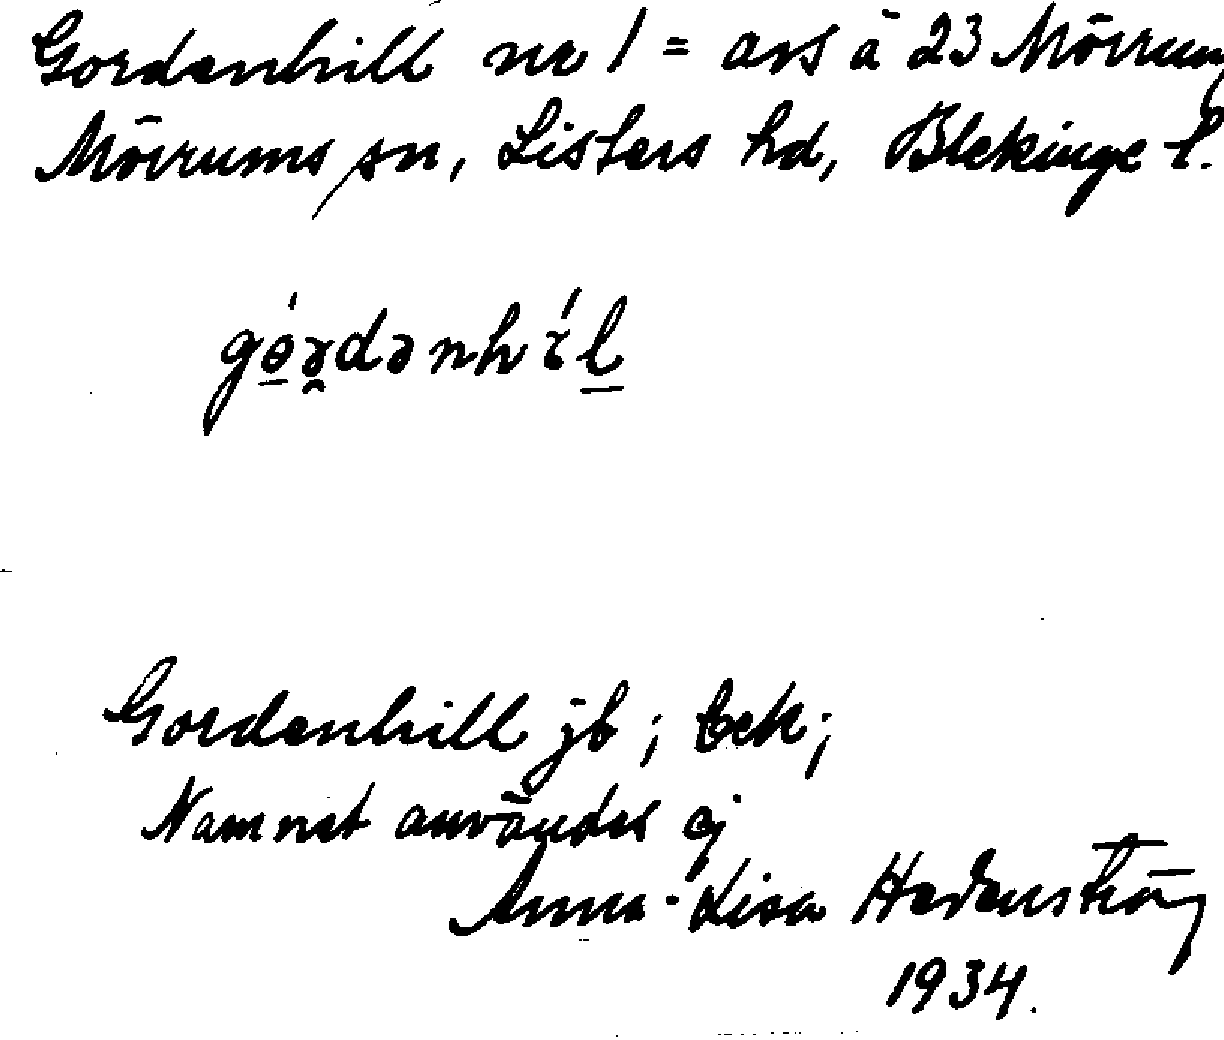 Gordenhill nr 1 = avs å 23 Mörrum,
Mörrums sn, Listers hd, Blekinge l.
gǿɿdənhíl
Gordenhill jb; tek;
Namnet användes ej
Anna-Lisa Hedenström
1934.